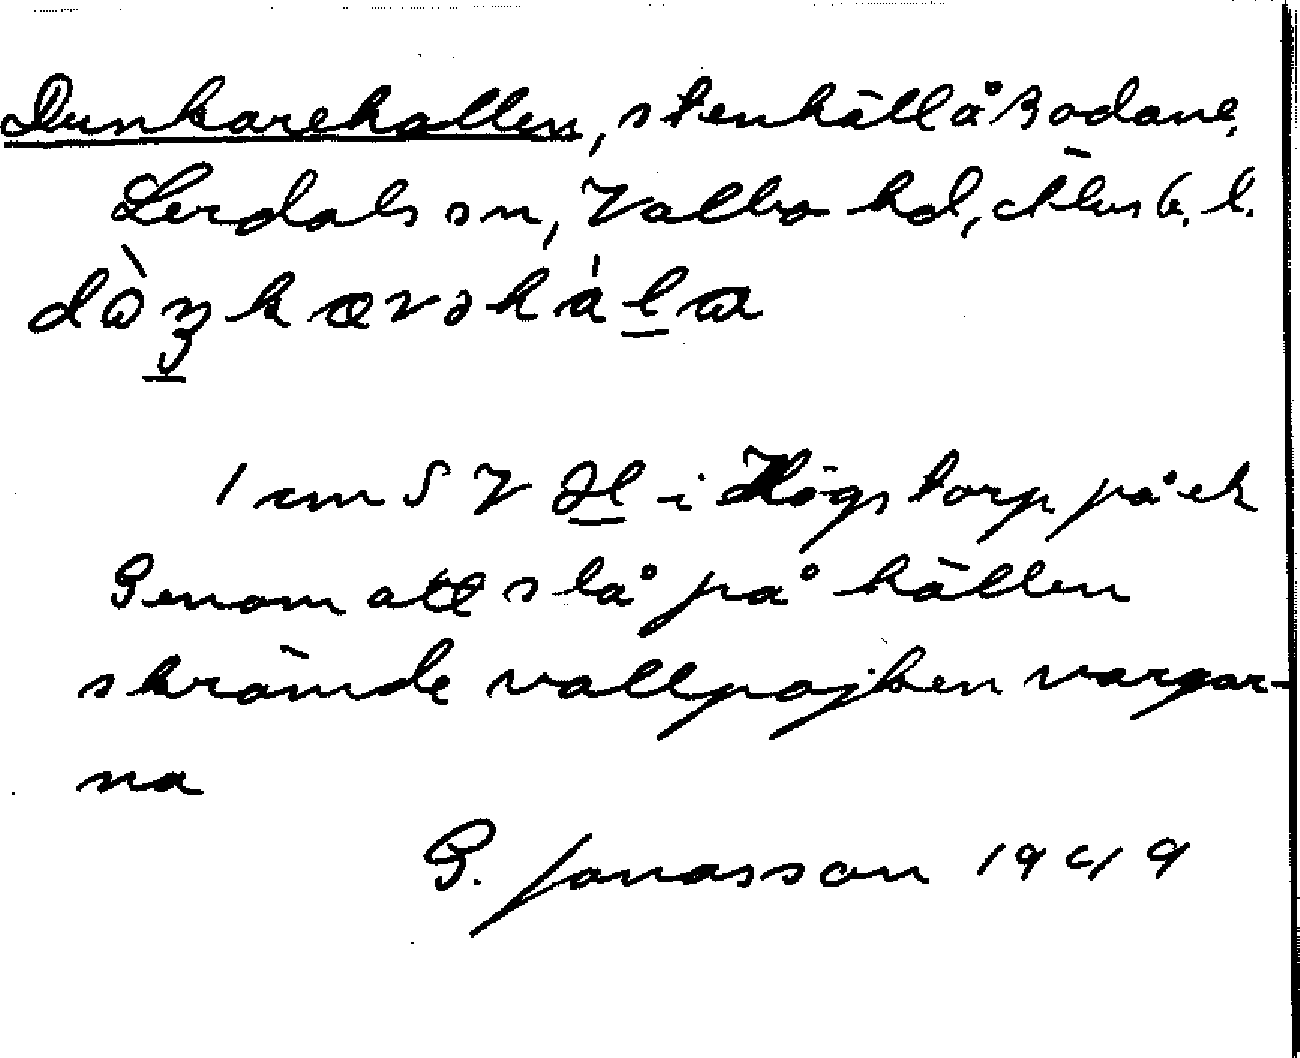 Dunkarehallen, stenhäll å Bodane,
Lerdals sn, Valbo hd, Älvsb. l.
1 cm S V H i Högstorp på ek
Genom att slå på hällen
skrämde vallpojken vargar-
na
G. Jonasson 1949